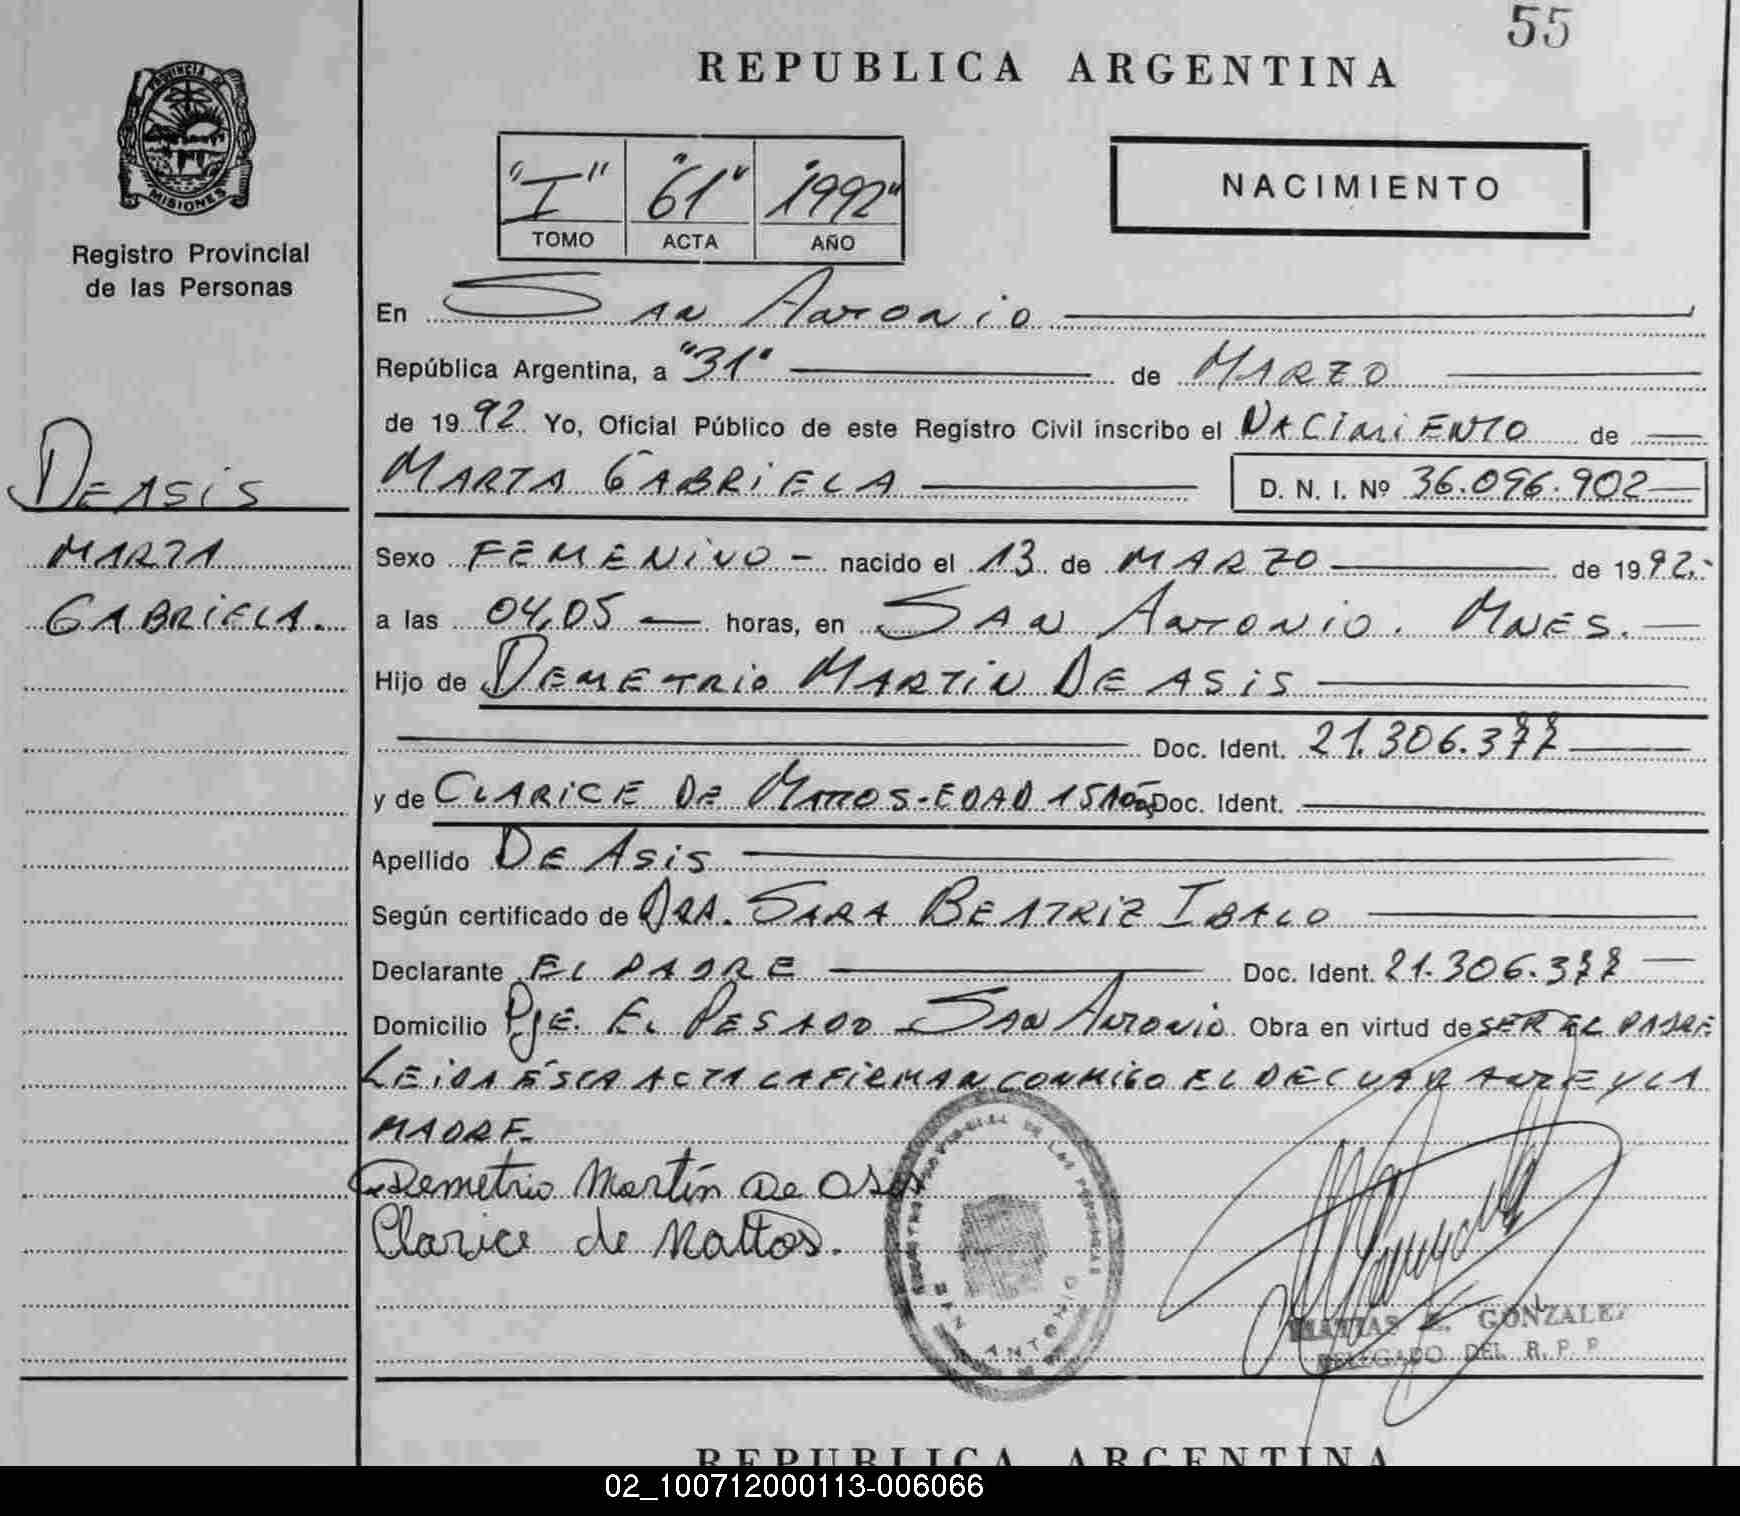 55
REPUBLICA ARGENTINA
PROVINCIA DE
MISIONES
Registro Provincial
de las Personas
"I" "61" "1992"
TOMO ACTA AÑO
NACIMIENTO
En San Antonio
República Argentina, a "31" de MARZO
de 1992 Yo, Oficial Público de este Registro Civil inscribo el NACIMIENTO de
MARTA GABRIELA D. N. I. Nº 36.096.902
DE ASIS
MARTA
GABRIELA.
Sexo FEMENINO - nacido el 13 de MARZO de 1992.-
a las 04,05 horas, en SAN ANTONIO. MNES.
Hijo de DEMETRIO MARTIN DE ASIS
Doc. Ident. 21.306.377
y de CLARICE DE MATTOS-EDAD 15 AÑOS Doc. Ident.
Apellido DE ASIS
Según certificado de DRA. SARA BEATRIZ IBALO
Declarante EL PADRE Doc. Ident. 21.306.377
Domicilio Pje. EL PESADO SAN ANTONIO Obra en virtud de SER EL PADRE
LEIDA ÉSTA ACTA LA FIRMAN CONMIGO EL DECLARANTE Y LA
MADRE.
Demetrio Martín De Asis
Clarice de Mattos.
REGISTRO PROVINCIAL DE LAS PERSONAS
SAN ANTONIO
MATIAS E. GONZALEZ
DELEGADO DEL R. P. P.
REPUBLICA ARGENTINA
02_100712000113-006066